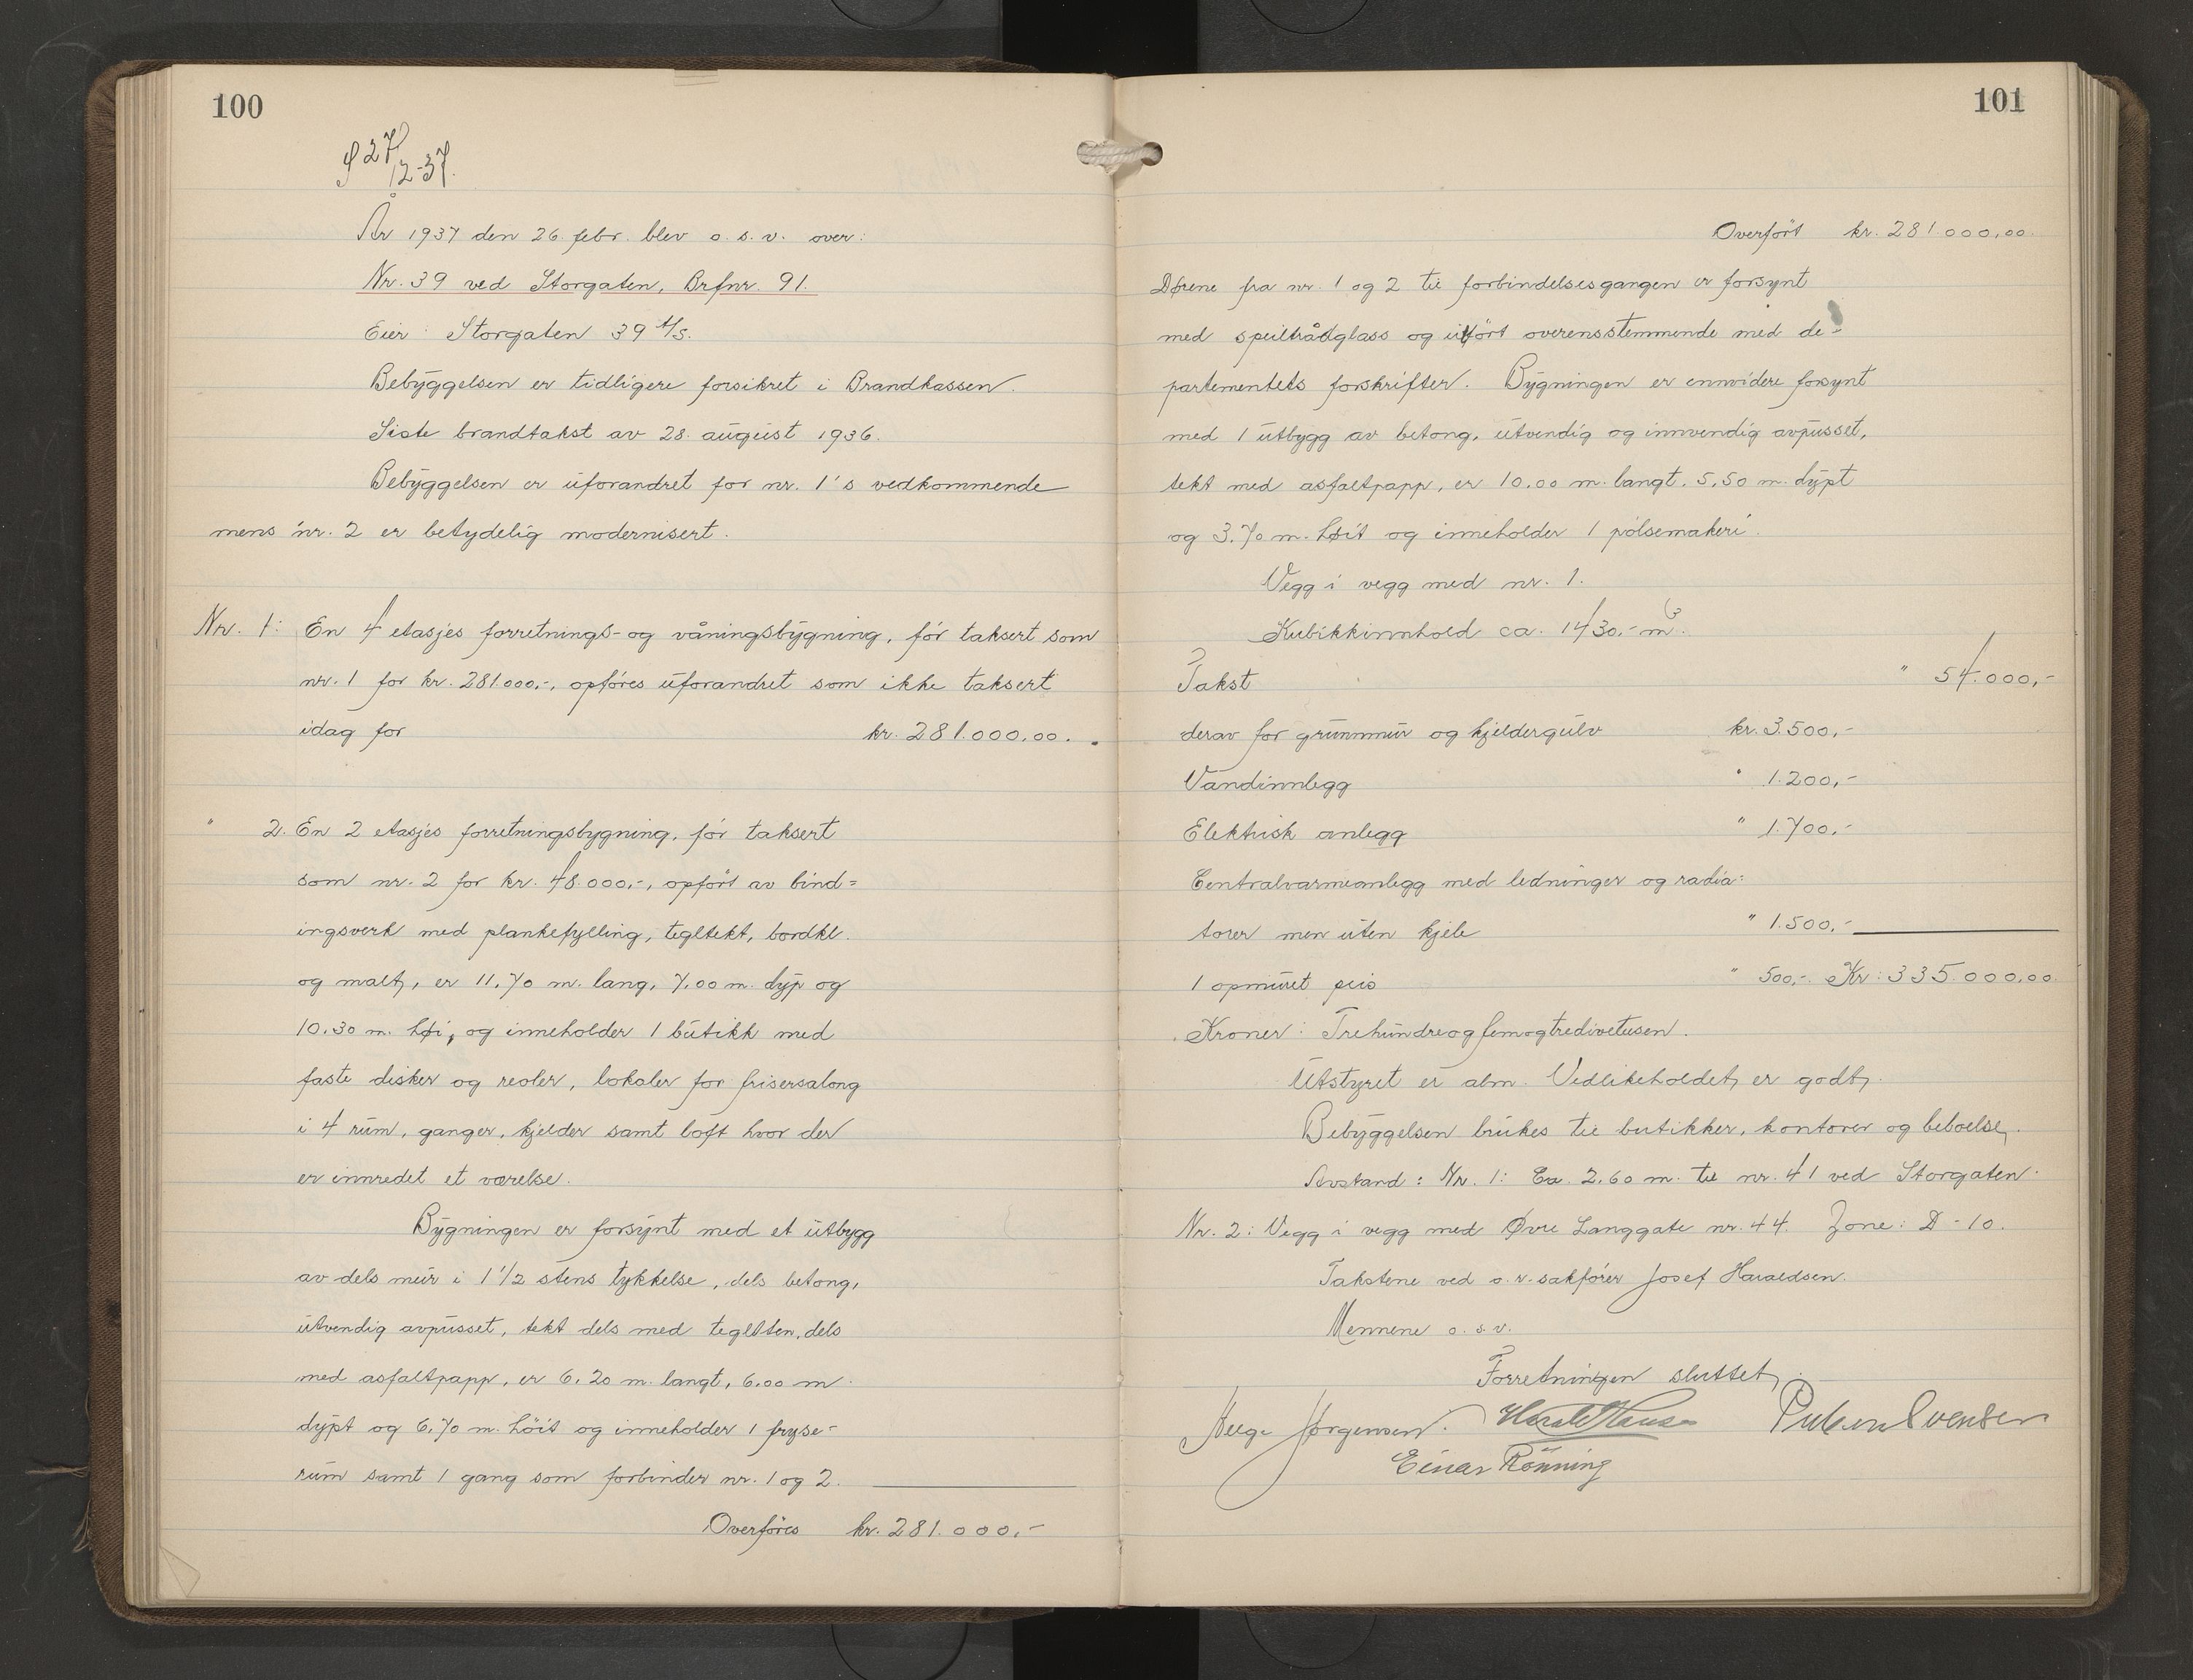 100
S 27/12-37.
År 1937 den 26. febr. blev o. s. v. over:
Nr. 39 ved Storgaten, Brfnr. 91.
Eier: Storgaten 39 A/S.
Bebyggelsen er tidligere forsikret i Brandkassen.
Siste brandtakst av 28. august 1936.
Bebyggelsen er uforandret for nr. 1's vedkommende
mens nr. 2 er betydelig modernisert.
Nr. 1: En 4 etasjes forretnings- og våningsbygning, før taksert som
nr. 1 for kr. 281.000,-, opføres uforandret som ikke taksert
idag for kr. 281.000,00.
" 2. En 2 etasjes forretningsbygning, før taksert
som nr. 2 for kr. 48.000,-, opført av bind=
ingsverk med plankefylling, tegltekt, bordkl.
og malt, er 11,70 m. lang, 7,00 m. dyp og
10,30 m. høi, og inneholder 1 butikk med
faste disker og reoler, lokaler for frisersalong
i 4 rum, ganger, kjelder samt loft hvor der
er innredet et værelse.
Bygningen er forsynt med et utbygg
av dels mur i 1 1/2 stens tykkelse, dels betong,
utvendig avpusset, tekt dels med teglsten, dels
med asfaltpapp, er 6,20 m. langt, 6,00 m.
dypt og 6,70 m. höit og inneholder 1 fryse-
rum samt 1 gang som forbinder nr. 1 og 2.
Overføres kr. 281.000,-
101
Overført kr. 281.000,00.
Dørene fra nr. 1 og 2 til forbindelsesgangen er forsynt
med speiltrådglass og utført overensstemmende med de=
partementets forskrifter. Bygningen er ennvidere forsynt
med 1 utbygg av betong, utvendig og innvendig avpusset,
tekt med asfaltpapp, er 10,00 m. langt, 5,50 m. dypt
og 3,70 m. høit og inneholder 1 pølsemakeri.
Vegg i vegg med nr. 1.
Kubikkinnhold ca. 1430,- m3.
Takst " 54.000,-
derav for grunnmur og kjeldergulv kr. 3.500,-
Vandinnlegg " 1.200,-
Elektrisk anlegg " 1.700,-
Centralvarmeanlegg med ledninger og radia=
torer men uten kjele " 1.500,-
1 opmuret peis " 500,- Kr: 335.000,00.
Kroner: Trehundreogfemogtredivetusen.
Utstyret er alm. Vedlikeholdet er godt.
Bebyggelsen brukes til butikker, kontorer og beboelse.
Avstand: Nr. 1: Ca. 2,60 m. til nr. 41 ved Storgaten.
Nr. 2: Vegg i vegg med Øvre Langgate nr. 44. Zone: D-10.
Takstene ved o. r. sakfører Josef Haraldsen.
Mennene o. s. v.
Forretningen sluttet.
Helge Jørgensen. Harald Hansen Svensen
Einar Rönning